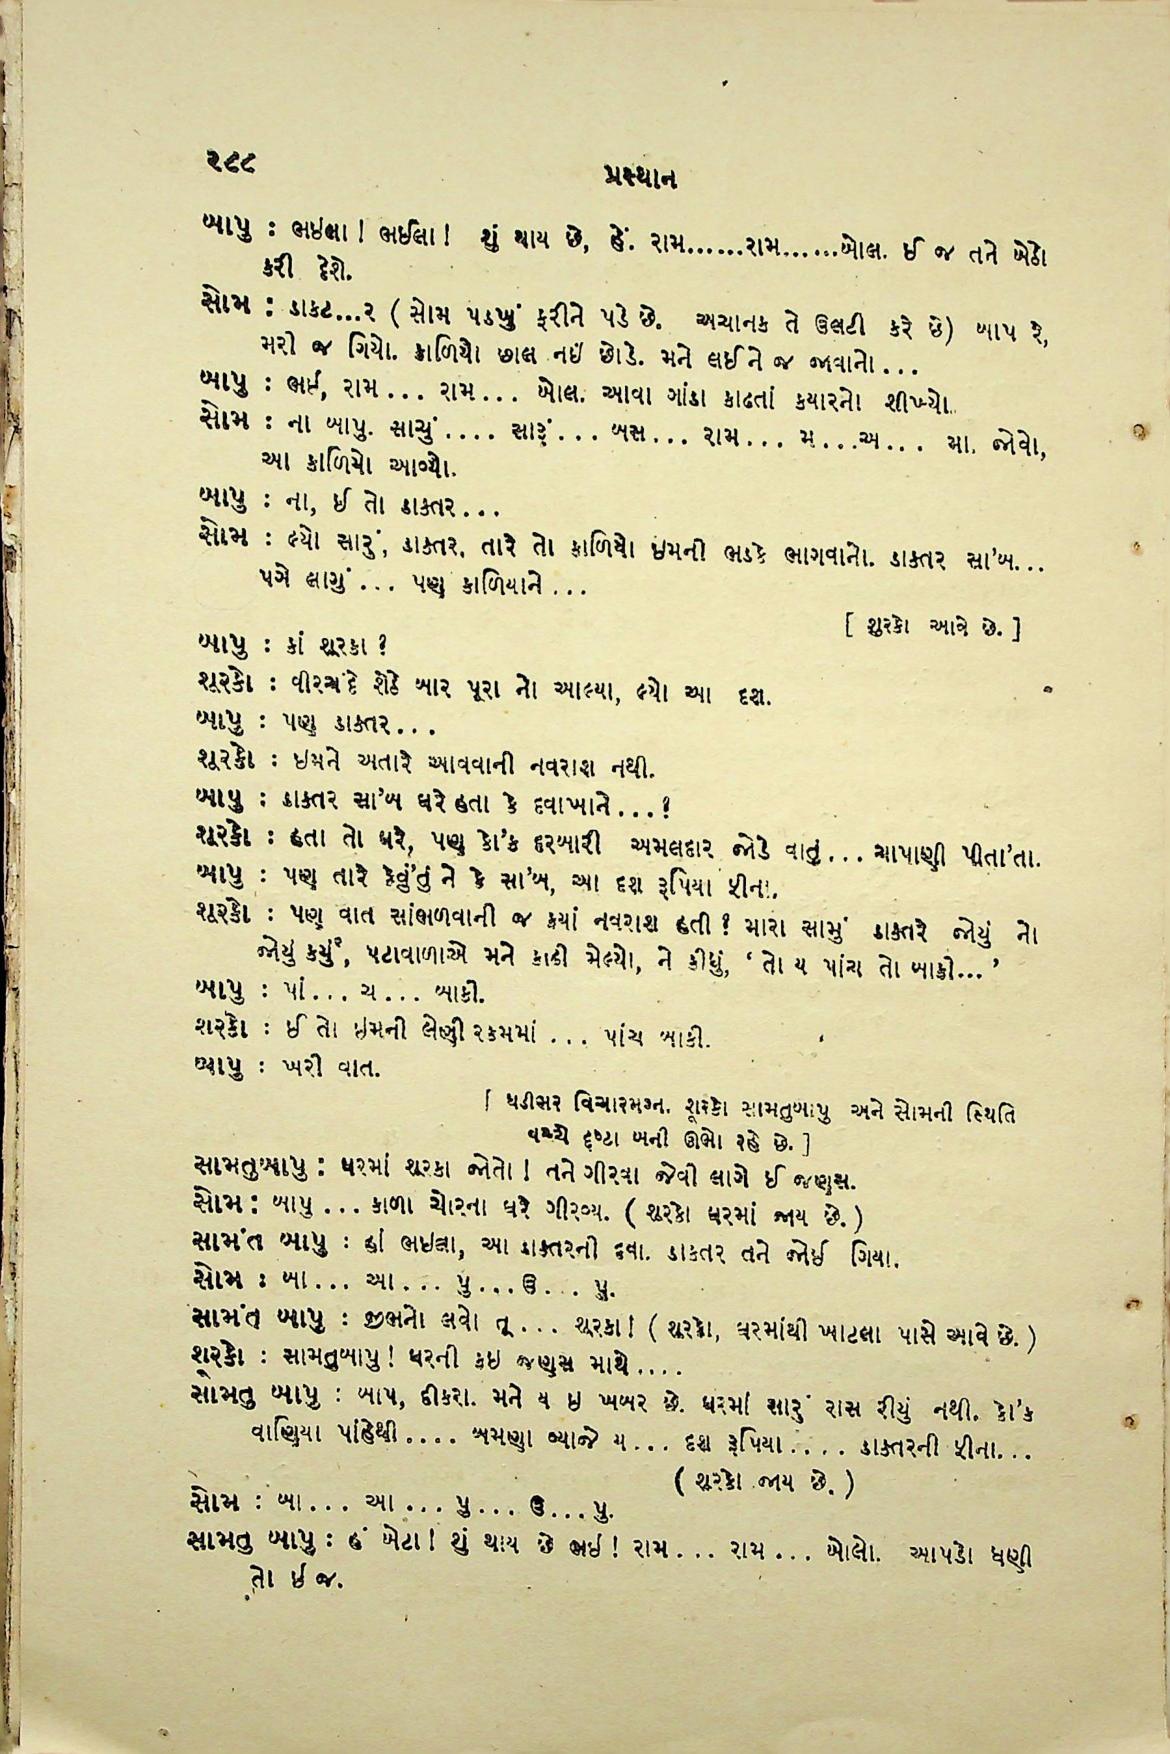 ૨૮૮
પ્રસ્થાન
બાપુ : ભઈલા! ભઈલા! શું થાય છે, હેં. રામ......રામ......બોલ. ઈ જ તને બેઠો
કરી દેશે.
સોમ : ડાકટ...ર ( સોમ પડખું ફરીને પડે છે. અચાનક તે ઉલટી કરે છે) બાપ રે,
મરી જ ગિયો. કાળિયો છાલ નઇં છોડે. મને લઈને જ જાવાનો...
બાપુ : ભઈ, રામ... રામ... બોલ. આવા ગાંડા કાઢતાં કયારનો શીખ્યો.
સોમ : ના બાપુ. સાચું.... સારૂં... બસ... રામ... મ...અ... મા. જોવો,
આ કાળિયો આવ્યો.
બાપુ : ના, ઈ તો ડાક્તર...
સોમ : લ્યો સારું, ડાક્તર. તારે તો કાળિયો ઇમની ભડકે ભાગવાનો. ડાક્તર સા'બ...
પગે લાગું... પણ કાળિયાને...
[ શુરકો આવે છે. ]
બાપુ : કાં શૂરકા ?
શૂરકો : વીરચંદે શેઠે બાર પૂરા નો આલ્યા, લ્યો આ દશ.
બાપુ : પણ ડાક્તર...
શૂરકો : ઇમને અતારે આવવાની નવરાશ નથી.
બાપુ : ડાક્તર સા'બ ઘરે હતા કે દવાખાને...?
શૂરકો : હતા તો ઘરે, પણ કો'ક દરબારી અમલદાર જોડે વાતું... ચાપાણી પીતા'તા.
બાપુ : પણ તારે કેવું'તું ને કે સા'બ, આ દશ રૂપિયા ફીના.
શૂરકો : પણ વાત સાંભળવાની જ કયાં નવરાશ હતી ? મારા સામું ડાક્તરે જોયું નો
જોયું કર્યું, પટાવાળાએ મને કાઢી મેલ્યો, ને કીધું, ‘ તો ય પાંચ તો બાકી...’
બાપુ : પાં... ચ... બાકી.
શરકો : ઈ તો ઇમની લેણી રકમમાં ... પાંચ બાકી.
બાપુ : ખરી વાત.
[ ઘડીભર વિચારમગ્ન. શૂરકો સામતુબાપુ અને સોમની સ્થિતિ
વચ્ચે દૃષ્ટા બની ઊભો રહે છે. ]
સામતુબાપુ : ઘરમાં શૂરકા જોતો! તને ગીરવા જેવી લાગે ઈ જણસ.
સોમ : બાપુ ... કાળા ચોરના ઘરે ગીરવ્ય. ( શૂરકો ઘરમાં જાય છે. )
સામંત બાપુ : હાં ભઇલા, આ ડાક્તરની દવા. ડાકતર તને જોઈ ગિયા.
સોમ : બા... આ... પુ...ઉ... પુ.
સામંત બાપુ : જીભનો લવો તૂ... શૂરકા! ( શૂરકો, ઘરમાંથી ખાટલા પાસે આવે છે. )
શૂરકો : સામતુબાપુ! ઘરની કઇ જણસ માથે....
સોમતુ બાપુ : બાપ, દીકરા. મને ય ઇ ખબર છે. ઘરમાં સારું રાસ રીયું નથી. કો'ક
વાણિયા પાંહેથી.... બમણા વ્યાજે ય... દશ રૂપિયા.... ડાક્તરની ફીના...
( શૂરકો જાય છે. )
સોમ : બા... આ... પુ... ઉ...પુ.
સામતુ બાપુ : હં બેટા! શું થાય છે ભઇ! રામ... રામ... બોલો. આપડો ધણી
તો ઇ જ.